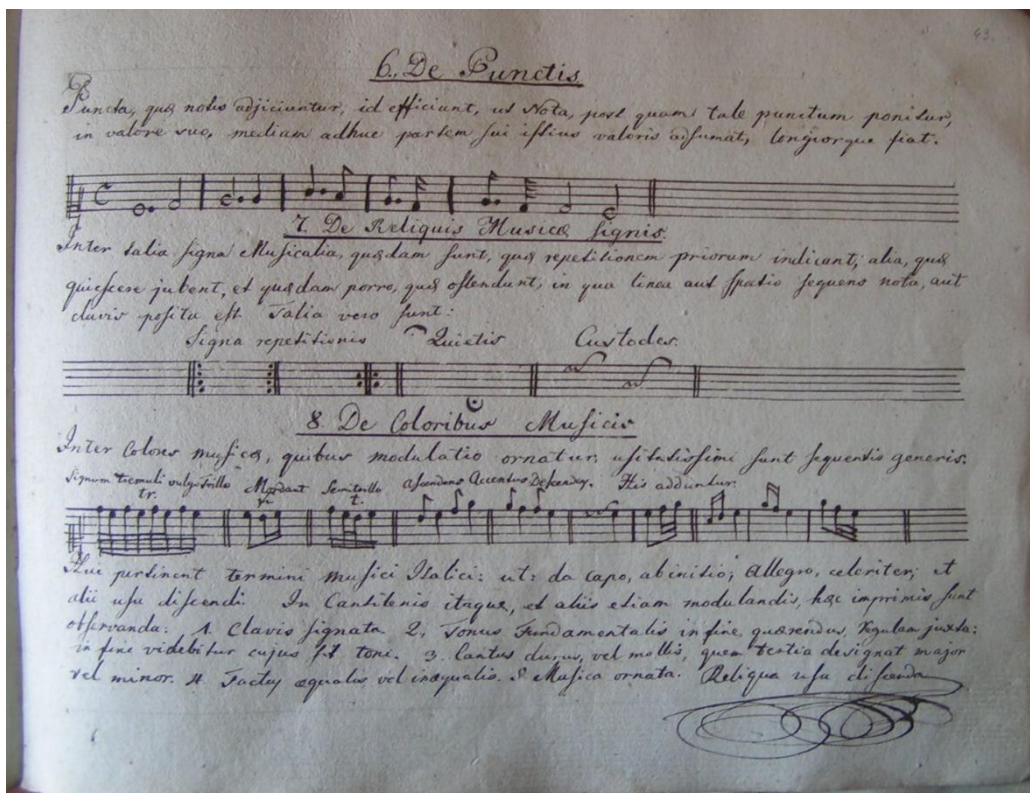 43.
6. De Punctis
Puncta, quæ notis adjiciuntur, id efficiunt, ut Nota, post quam tale punctum ponitur,
in valore suo, mediam adhuc partem sui istius valoris adsumat, longiorque fiat.
7. De Reliquis Musicæ signis
Inter talia signa Musicalia, quædam sunt, quæ repetitionem priorum indicant; alia, quæ
quiescere jubent, et quædam porro, quæ ostendunt, in qua linea aut spatio sequens nota, aut
clavis posita est. Talia vero sunt:
Signa repetitionis Quietis Custodes.
8. De Coloribus Musicis
Inter Colores musicæ, quibus modulatio ornatur, usitatissimi sunt sequentis generis.
Signum tremuli vulgo trillo Mordant Semitrillo Ascendens Accentus Descendens. His adduntur.
tr. t.
Huc pertinent termini musici Italici: ut: da capo, ab initio; Allegro, celeriter; et
alii usu discendi. In Cantilenis itaque, et aliis etiam modulandis, hæc imprimis sunt
observanda: 1. Clavis signata 2, Tonus Fundamentalis in fine quærendus, regulam juxta:
in fine videbitur cujus sit toni. 3. Cantus durus, vel mollis, quem tertia designat major
vel minor. 4. Tactus æqualis vel inæqualis. 5 Musica ornata. Reliqua usu discenda